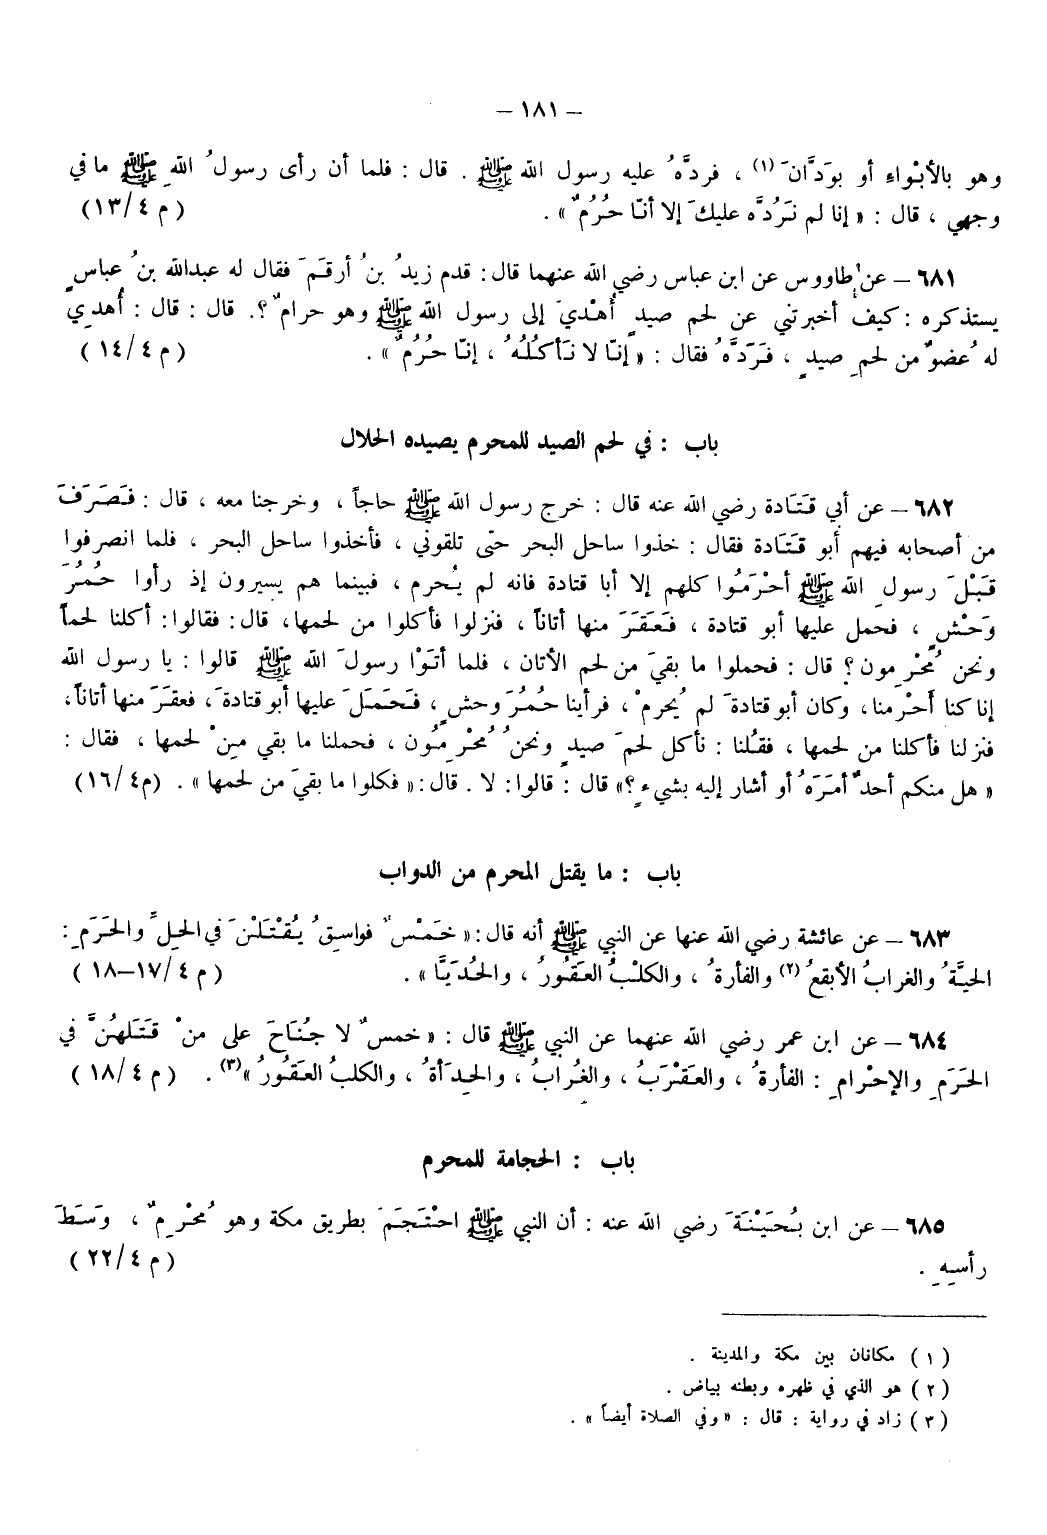 – ١٨١ –
وهو بالأبْواءِ أو بوَدَّانَ (١) ، فردَّهُ عليه رسول الله ﷺ . قال : فلما أن رأى رسولُ اللهِ ﷺ ما في
وجهي ، قال : « إنا لم نَرُدَّه عليكَ إلا أنّا حُرُمٌ » . ( م ٤/١٣)
٦٨١ – عن طاووس عن ابن عباس رضي الله عنهما قال : قدم زيدُ بنُ أرقَمَ فقال له عبدالله بنُ عباسٍ
يستذكره : كيف أخبرتني عن لحم صيدٍ أُهْديَ إلى رسول الله ﷺ وهو حرامٌ ؟. قال : قال : أُهدِيَ
له ُعضوٌ من لحمِ صيدٍ ، فَرَدَّهُ فقال : « إنّا لا نَأكُلُهُ ، إنّا حُرُمٌ » . ( م ٤/١٤ )
باب : في لحم الصيد للمحرم يصيده الحلال
٦٨٢ – عن أبي قَتَادة رضي الله عنه قال : خرج رسول الله ﷺ حاجاً ، وخرجنا معه ، قال : فَصَرَفَ
من أصحابه فيهم أبو قَتَادة فقال : خذوا ساحل البحر حتى تلقوني ، فأخذوا ساحل البحر ، فلما انصرفوا
قَبْلَ رسولِ الله ﷺ أحْرَمُوا كلهم إلا أبا قتادة فانه لم يُحرم ، فبينما هم يسيرون إذ رأوا حُمُرَ
وَحْشٍ ، فحمل عليها أبو قتادة ، فَعَقَرَ منها أتاناً ، فنزلوا فأكلوا من لحمها، قال: فقالوا: أكلنا لحماً
ونحن ُمحْرِمون ؟ قال : فحملوا ما بقيَ من لحم الأتان ، فلما أتَوْا رسولَ الله ﷺ قالوا : يا رسول الله
إنا كنا أحْرمنا، وكان أبو قتادةَ لم يُحرمْ ، فرأينا حُمُرَ وحشٍ ، فَحَمَلَ عليها أبو قتادةَ ، فعقَرَ منها أتاناً،
فنزلنا فأكلنا من لحمها ، فقُلنا : نأكل لحمَ صيدٍ ونحنُ ُمحْرِمُون ، فحملنا ما بقي مِنْ لحمها ، فقال :
« هل منكم أحدٌ أمَرَهُ أو أشار إليه بشيءٍ ؟» قال : قالوا: لا . قال: « فكلوا ما بقيَ من لحمها » . (م٤/١٦)
باب : ما يقتل المحرم من الدواب
٦٨٣ – عن عائشة رضي الله عنها عن النبي ﷺ أنه قال : « خَمْسٌ فواسِقُ يُقْتَلْنَ في الحِلِّ والحَرَمِ :
الحيَّةُ والغرابُ الأبقعُ (٢) والفأرةُ ، والكلْبُ العَقُورُ ، والحُدَيَّا » . ( م ٤/١٧–١٨ )
٦٨٤ – عن ابن عمر رضي الله عنهما عن النبي ﷺ قال : « خمسٌ لا جُنَاحَ على منْ قَتَلَهُنَّ في
الحَرَمِ والإحْرامِ : الفأرةُ ، والعَقْرَبُ ، والغُرابُ ، والحِدَأةُ ، والكلبُ العَقُورُ »(٣) . ( م ٤/١٨ )
باب : الحجامة للمحرم
٦٨٥ – عن ابن بُحَيْنَةَ رضي الله عنه : أن النبي ﷺ احْتَجَمَ بطريق مكة وهو ُمحْرِمٌ ، وَسَطَ
رأسِهِ . ( م ٤/٢٢ )
( ١ ) مكانان بين مكة والمدينة .
( ٢ ) هو الذي في ظهره وبطنه بياض .
( ٣ ) زاد في رواية : قال : « وفي الصلاة أيضاً » .